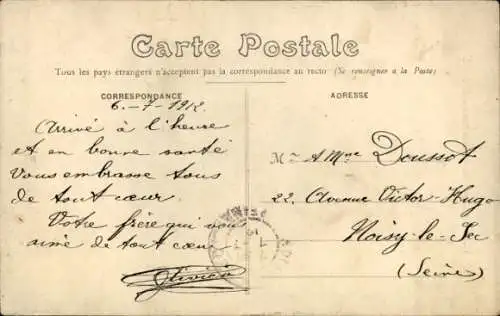 Carte Postale
Tous les pays étrangers n'acceptent pas la correspondance au recto (Se renseigner à la Poste)
CORRESPONDANCE
6-7-1912
Arrivé à l'heure
et en bonne santé
Vous embrasse tous
de tout cœur.
Votre frère qui vous
aime de tout cœur
Olivier
ADRESSE
M A Mme Doussot
22, Avenue Victor-Hugo
Noisy-le-Sec
(Seine)